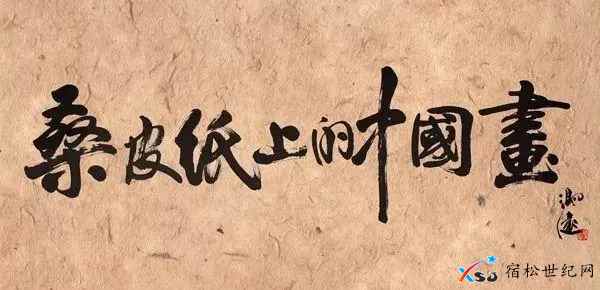 桑皮纸上的中國畫
XSD 宿松世纪网